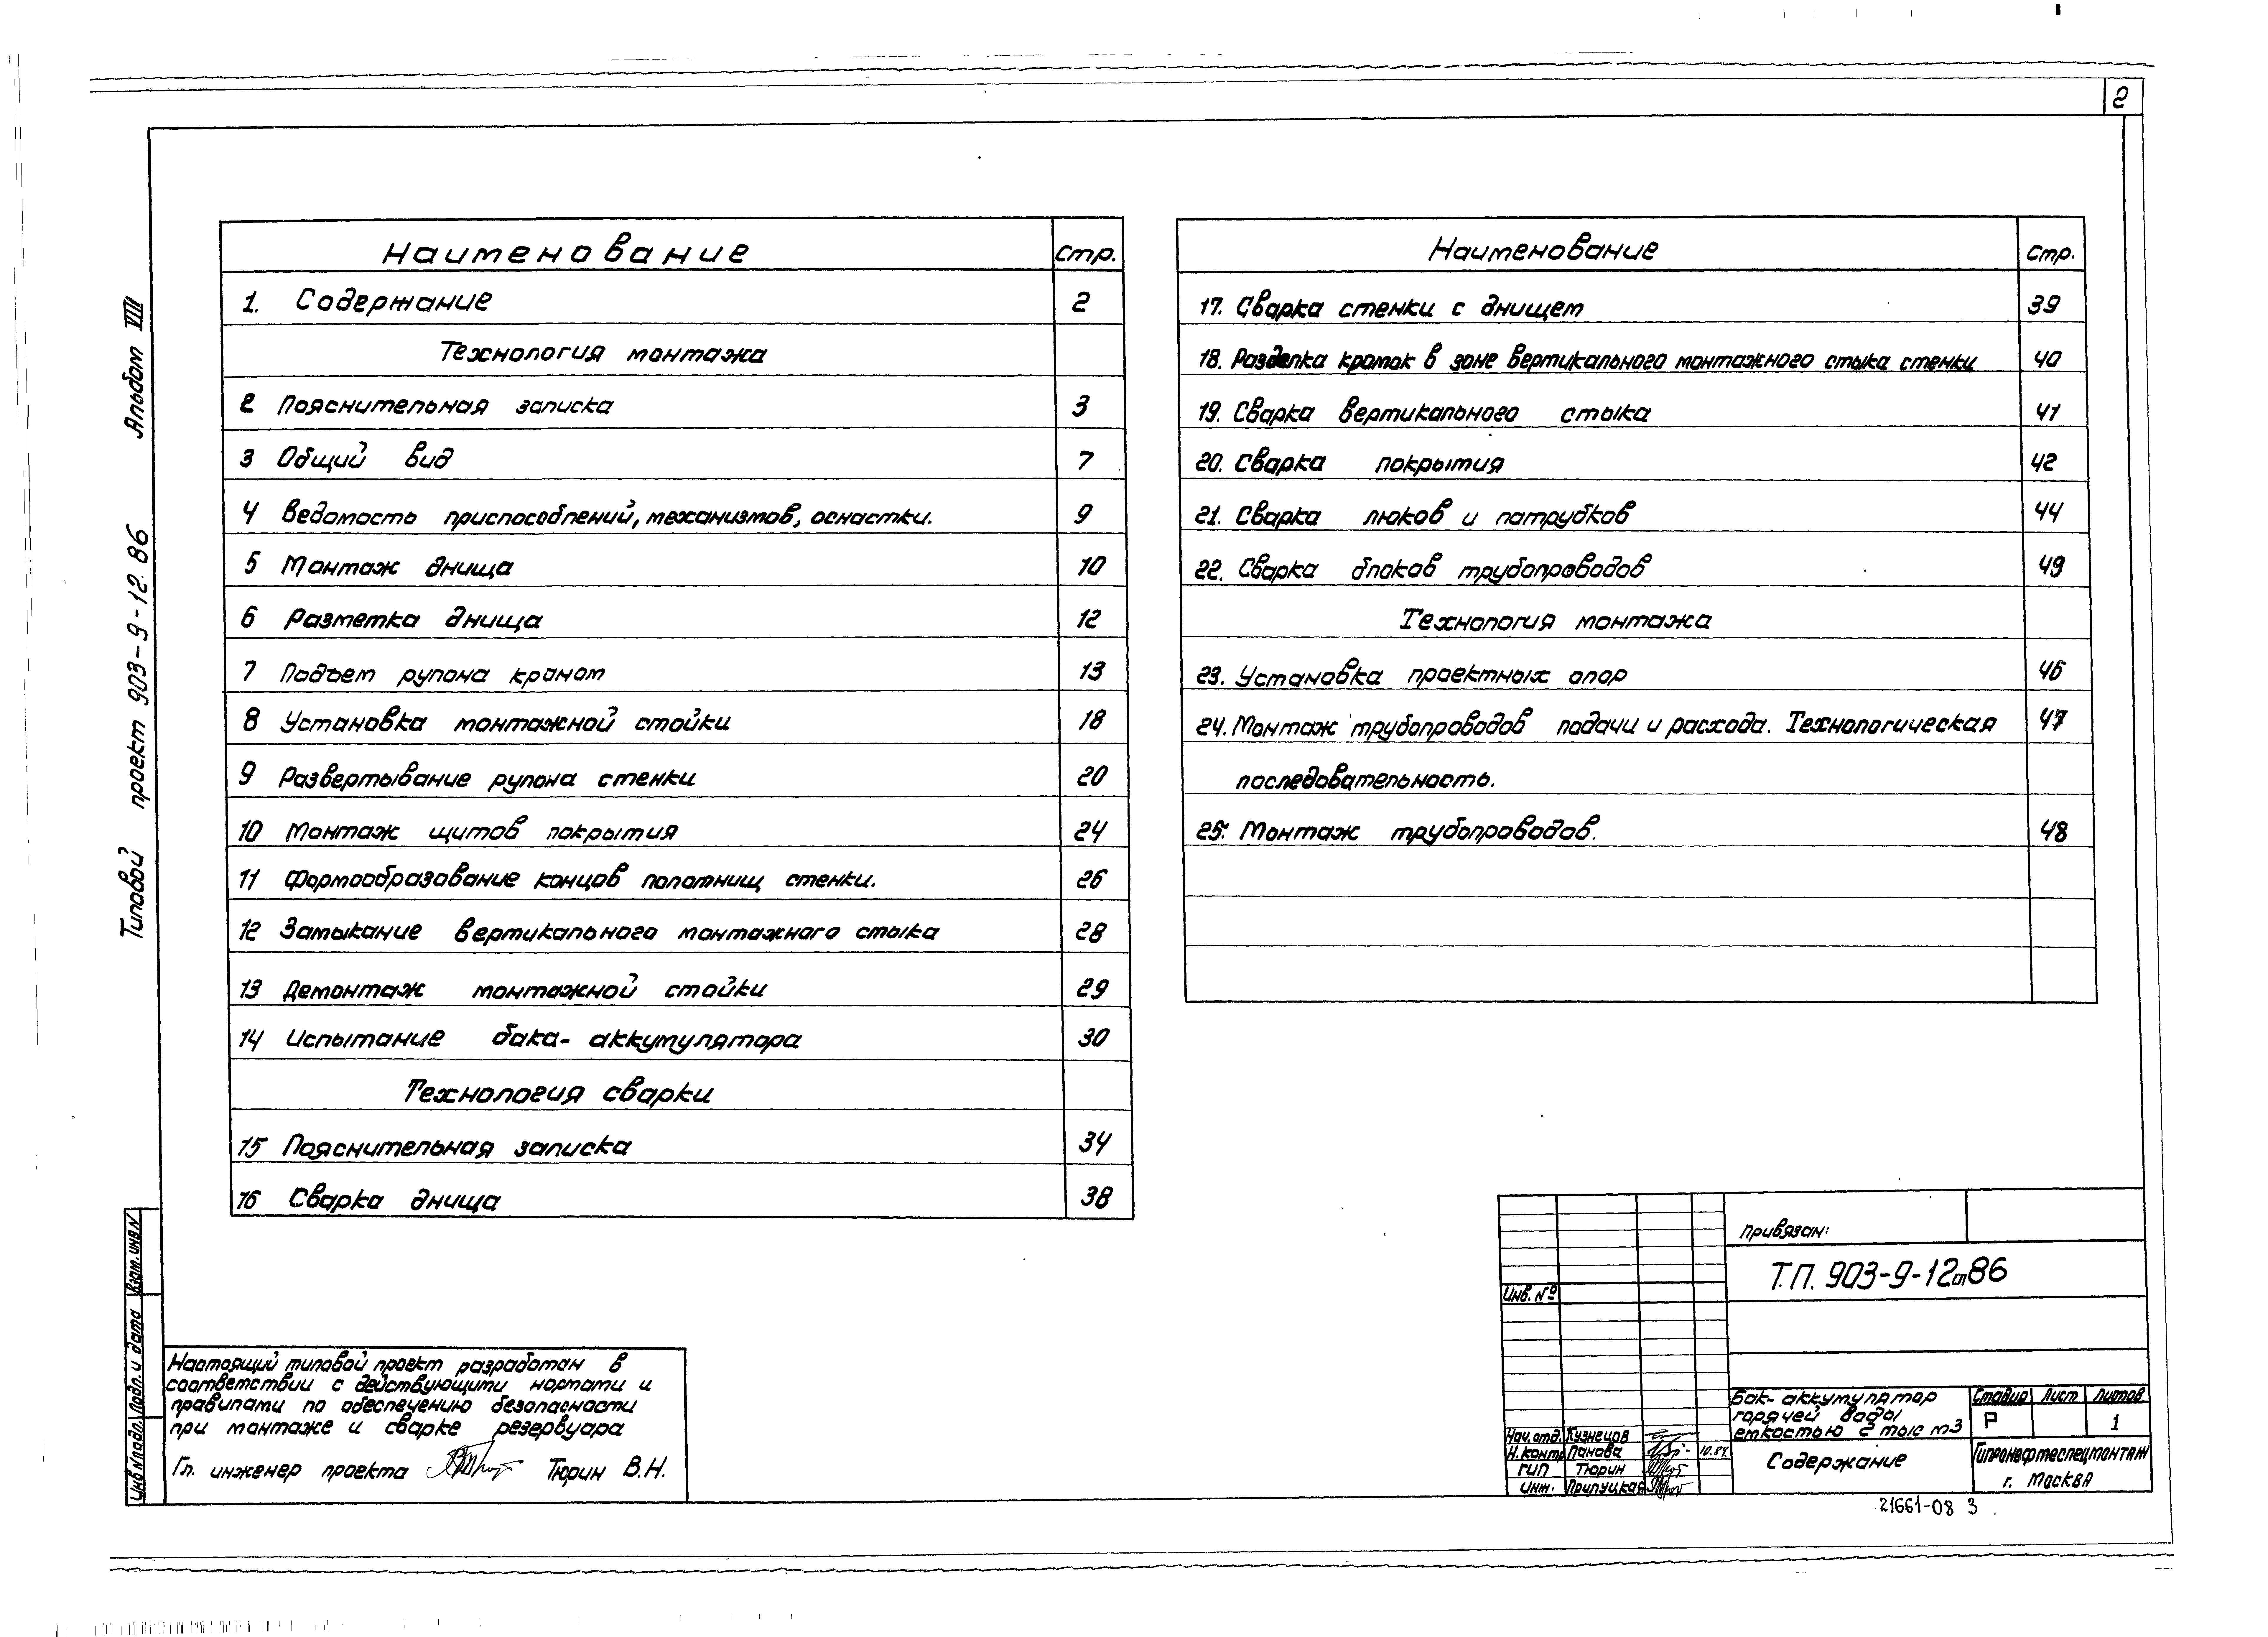 2
Альбом VIII
Типовой проект 903-9-12.86
Наименование Стр.
1. Содержание 2
Технология монтажа
2 Пояснительная записка 3
3 Общий вид 7
4 Ведомость приспособлений, механизмов, оснастки. 9
5 Монтаж днища 10
6 Разметка днища 12
7 Подъем рулона краном 13
8 Установка монтажной стойки 18
9 Развертывание рулона стенки 20
10 Монтаж щитов покрытия 24
11 Формообразование концов полотнищ стенки. 26
12 Замыкание вертикального монтажного стыка 28
13 Демонтаж монтажной стойки 29
14 Испытание бака-аккумулятора 30
Технология сварки
15 Пояснительная записка 34
16 Сварка днища 38
Наименование Стр.
17. Сварка стенки с днищем 39
18. Разделка кромок в зоне вертикального монтажного стыка стенки 40
19. Сварка вертикального стыка 41
20. Сварка покрытия 42
21. Сварка люков и патрубков 44
22. Сварка блоков трубопроводов 49
Технология монтажа
23. Установка проектных опор 46
24. Монтаж трубопроводов подачи и расхода. Технологическая 47
последовательность.
25. Монтаж трубопроводов. 48
Взам. инв. N
Подп. и дата
Инв N подл.
Настоящий типовой проект разработан в
соответствии с действующими нормами и
правилами по обеспечению безопасности
при монтаже и сварке резервуара
Гл. инженер проекта Тюрин В.Н.
Привязан:
Инв. №
Т.П. 903-9-12сп86
Бак-аккумулятор
горячей воды
емкостью 2 тыс м3
Стадия Лист Листов
Р 1
Нач. отд. Кузнецов
Н. контр Панова 10.84
ГИП Тюрин
Инж. Прилуцкая
Содержание
Гипронефтеспецмонтаж
г. Москва
21661-08 3